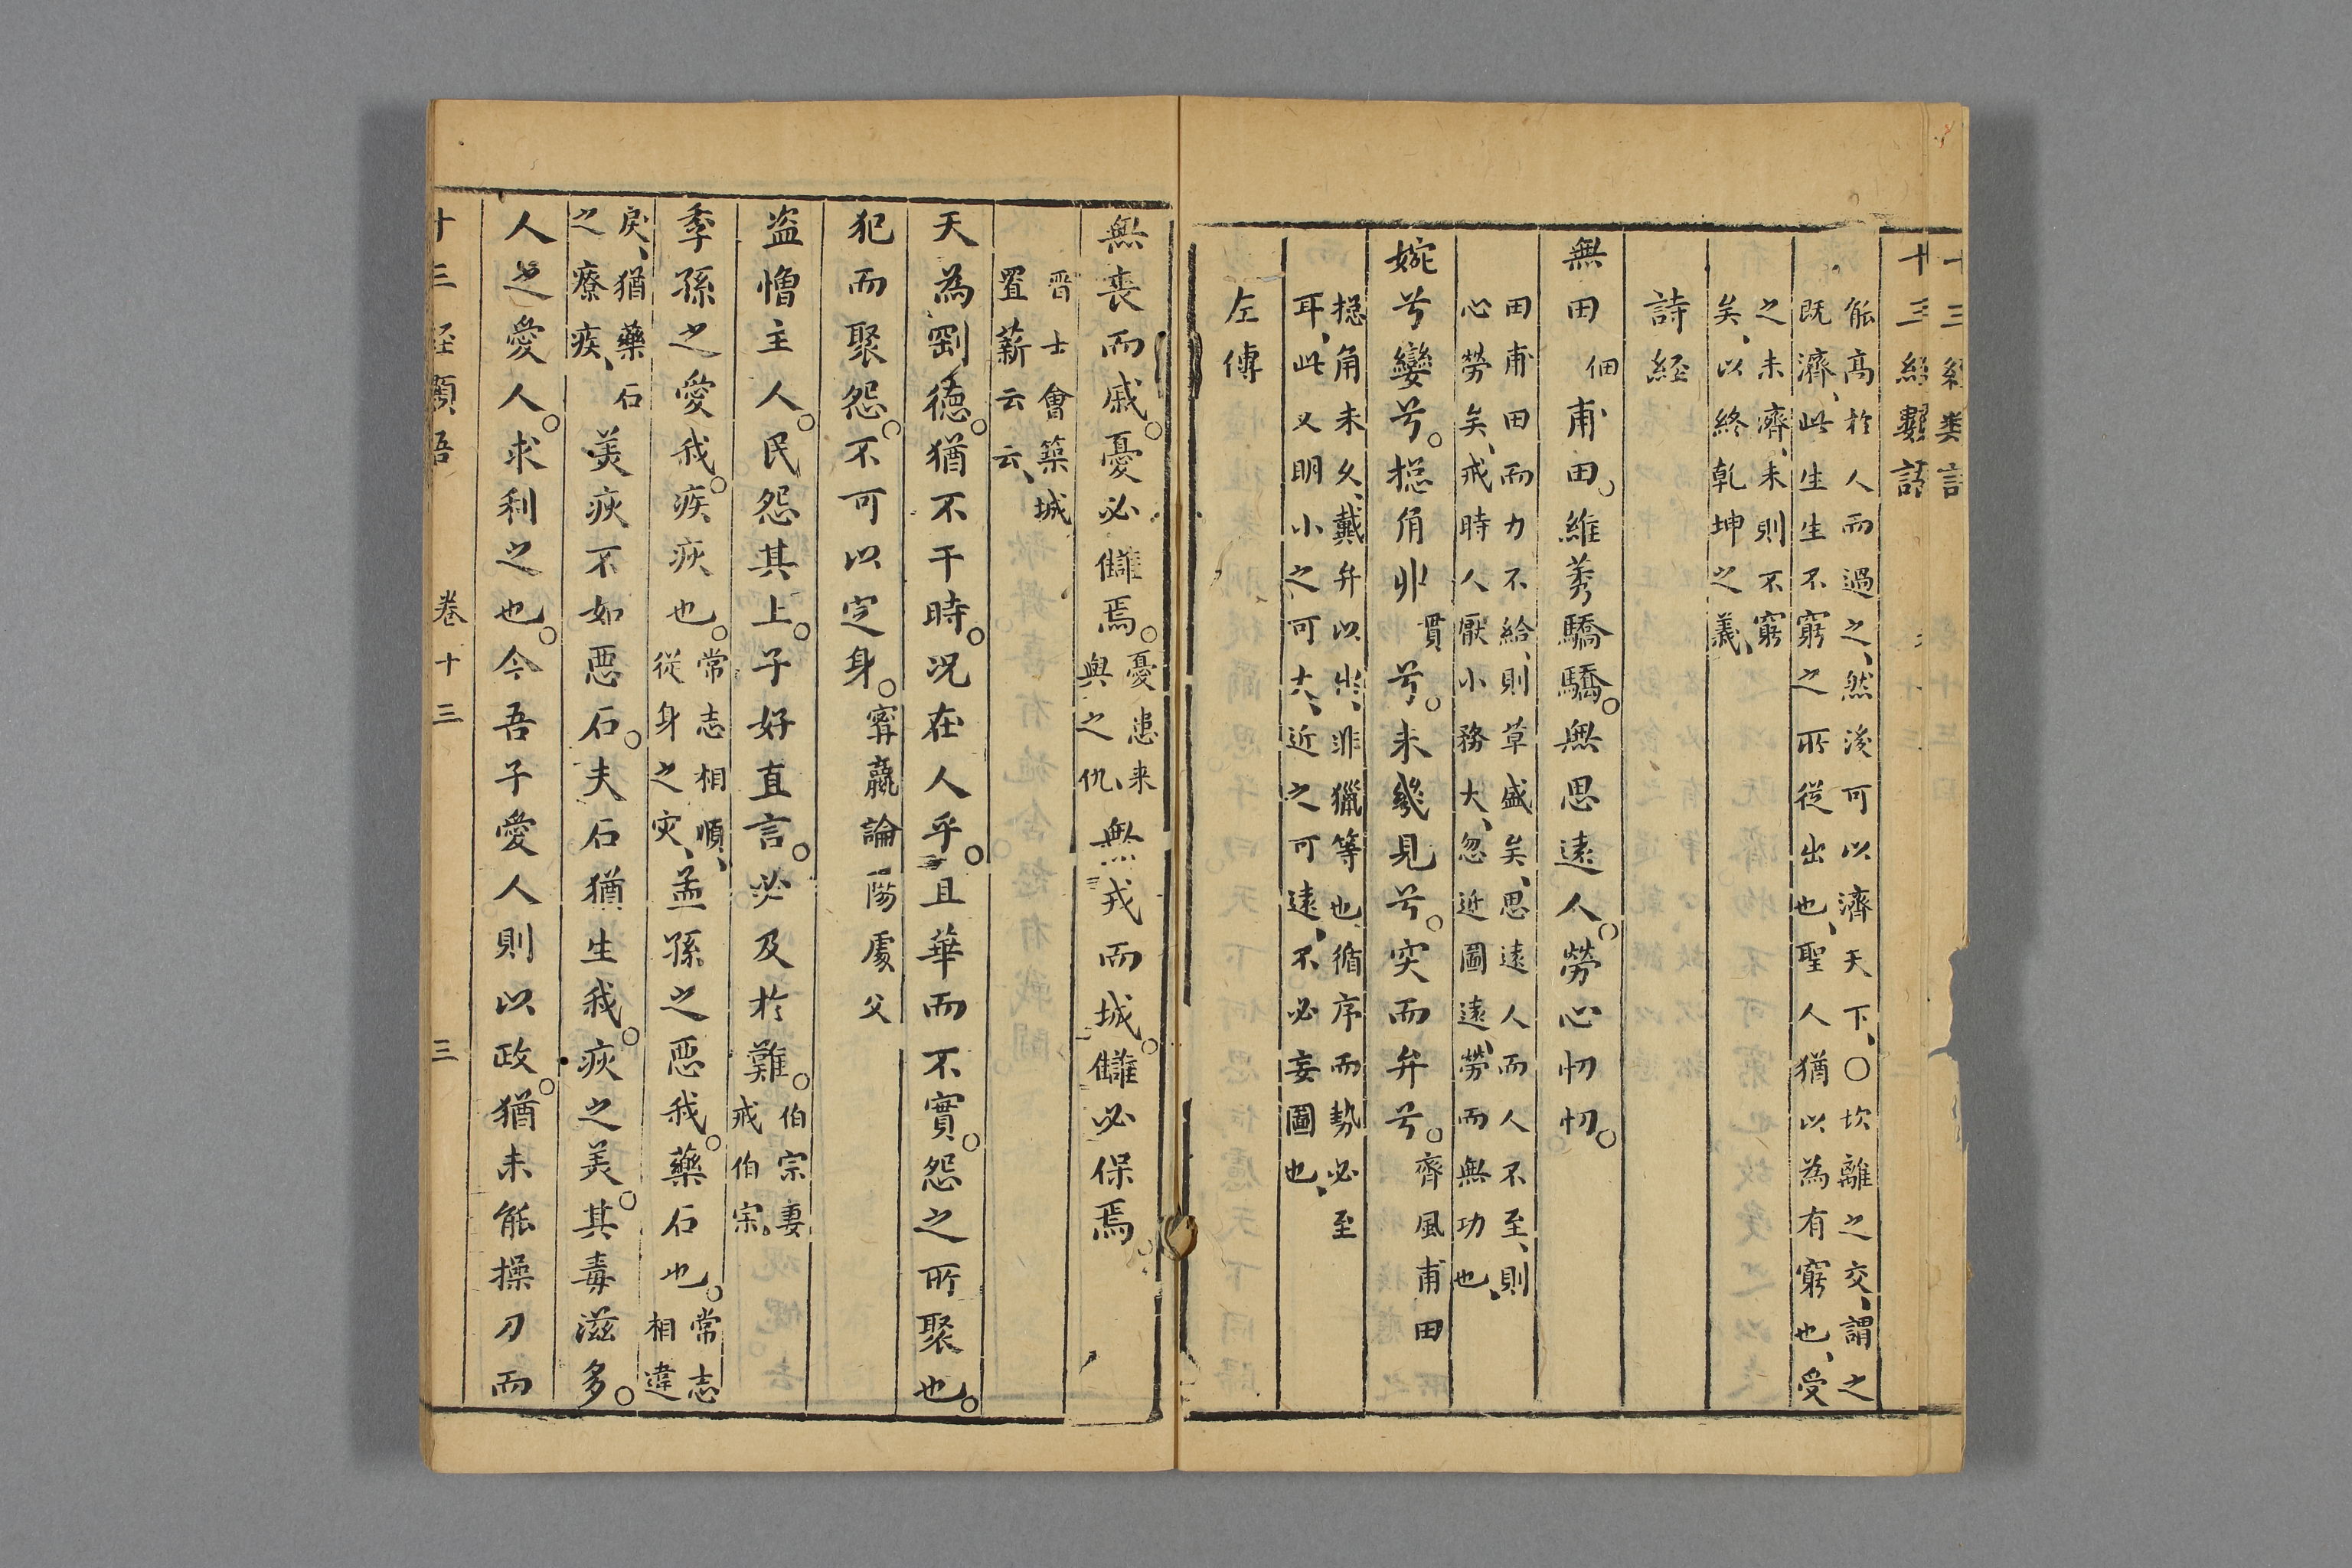 十三經類語
能高於人而過之、然後可以濟天下、〇坎離之交、謂之
既濟、此生生不窮之所從出也、聖人猶以為有窮也、受
之未濟、未則不窮
矣、以終乾坤之義、
詩經
無田佃甫田。維莠驕驕。無思遠人。勞心忉忉。
田甫田而力不給、則草盛矣、思遠人而人不至、則
心勞矣、戒時人厭小務大、忽近圖遠、勞而無功也、
婉兮孌兮。総角丱貫兮。未幾見兮。突而弁兮。齊風甫田
総角未久、戴弁以出、非獵等也、循序而勢必至
耳、此又明小之可大、近之可遠、不必妄圖也、
左傳
無喪而戚。憂必讎焉。憂患来與之仇、無戎而城。讎必保焉。
晉士會築城
置薪云云、
天為剛德。猶不干時。況在人乎。且華而不實。怨之所聚也。
犯而聚怨。不可以定身。甯嬴論陽處父
盗憎主人。民怨其上。子好直言。必及於難。伯宗妻戒伯宗、
季孫之愛我。疾疢也。常志相順、從身之灾、孟孫之惡我。藥石也。常志相違
戾、猶藥石之療疾、美疢不如惡石。夫石猶生我。疢之美。其毒滋多。
人之愛人。求利之也。今吾子愛人則以政。猶未能操刀而
卷十三
三